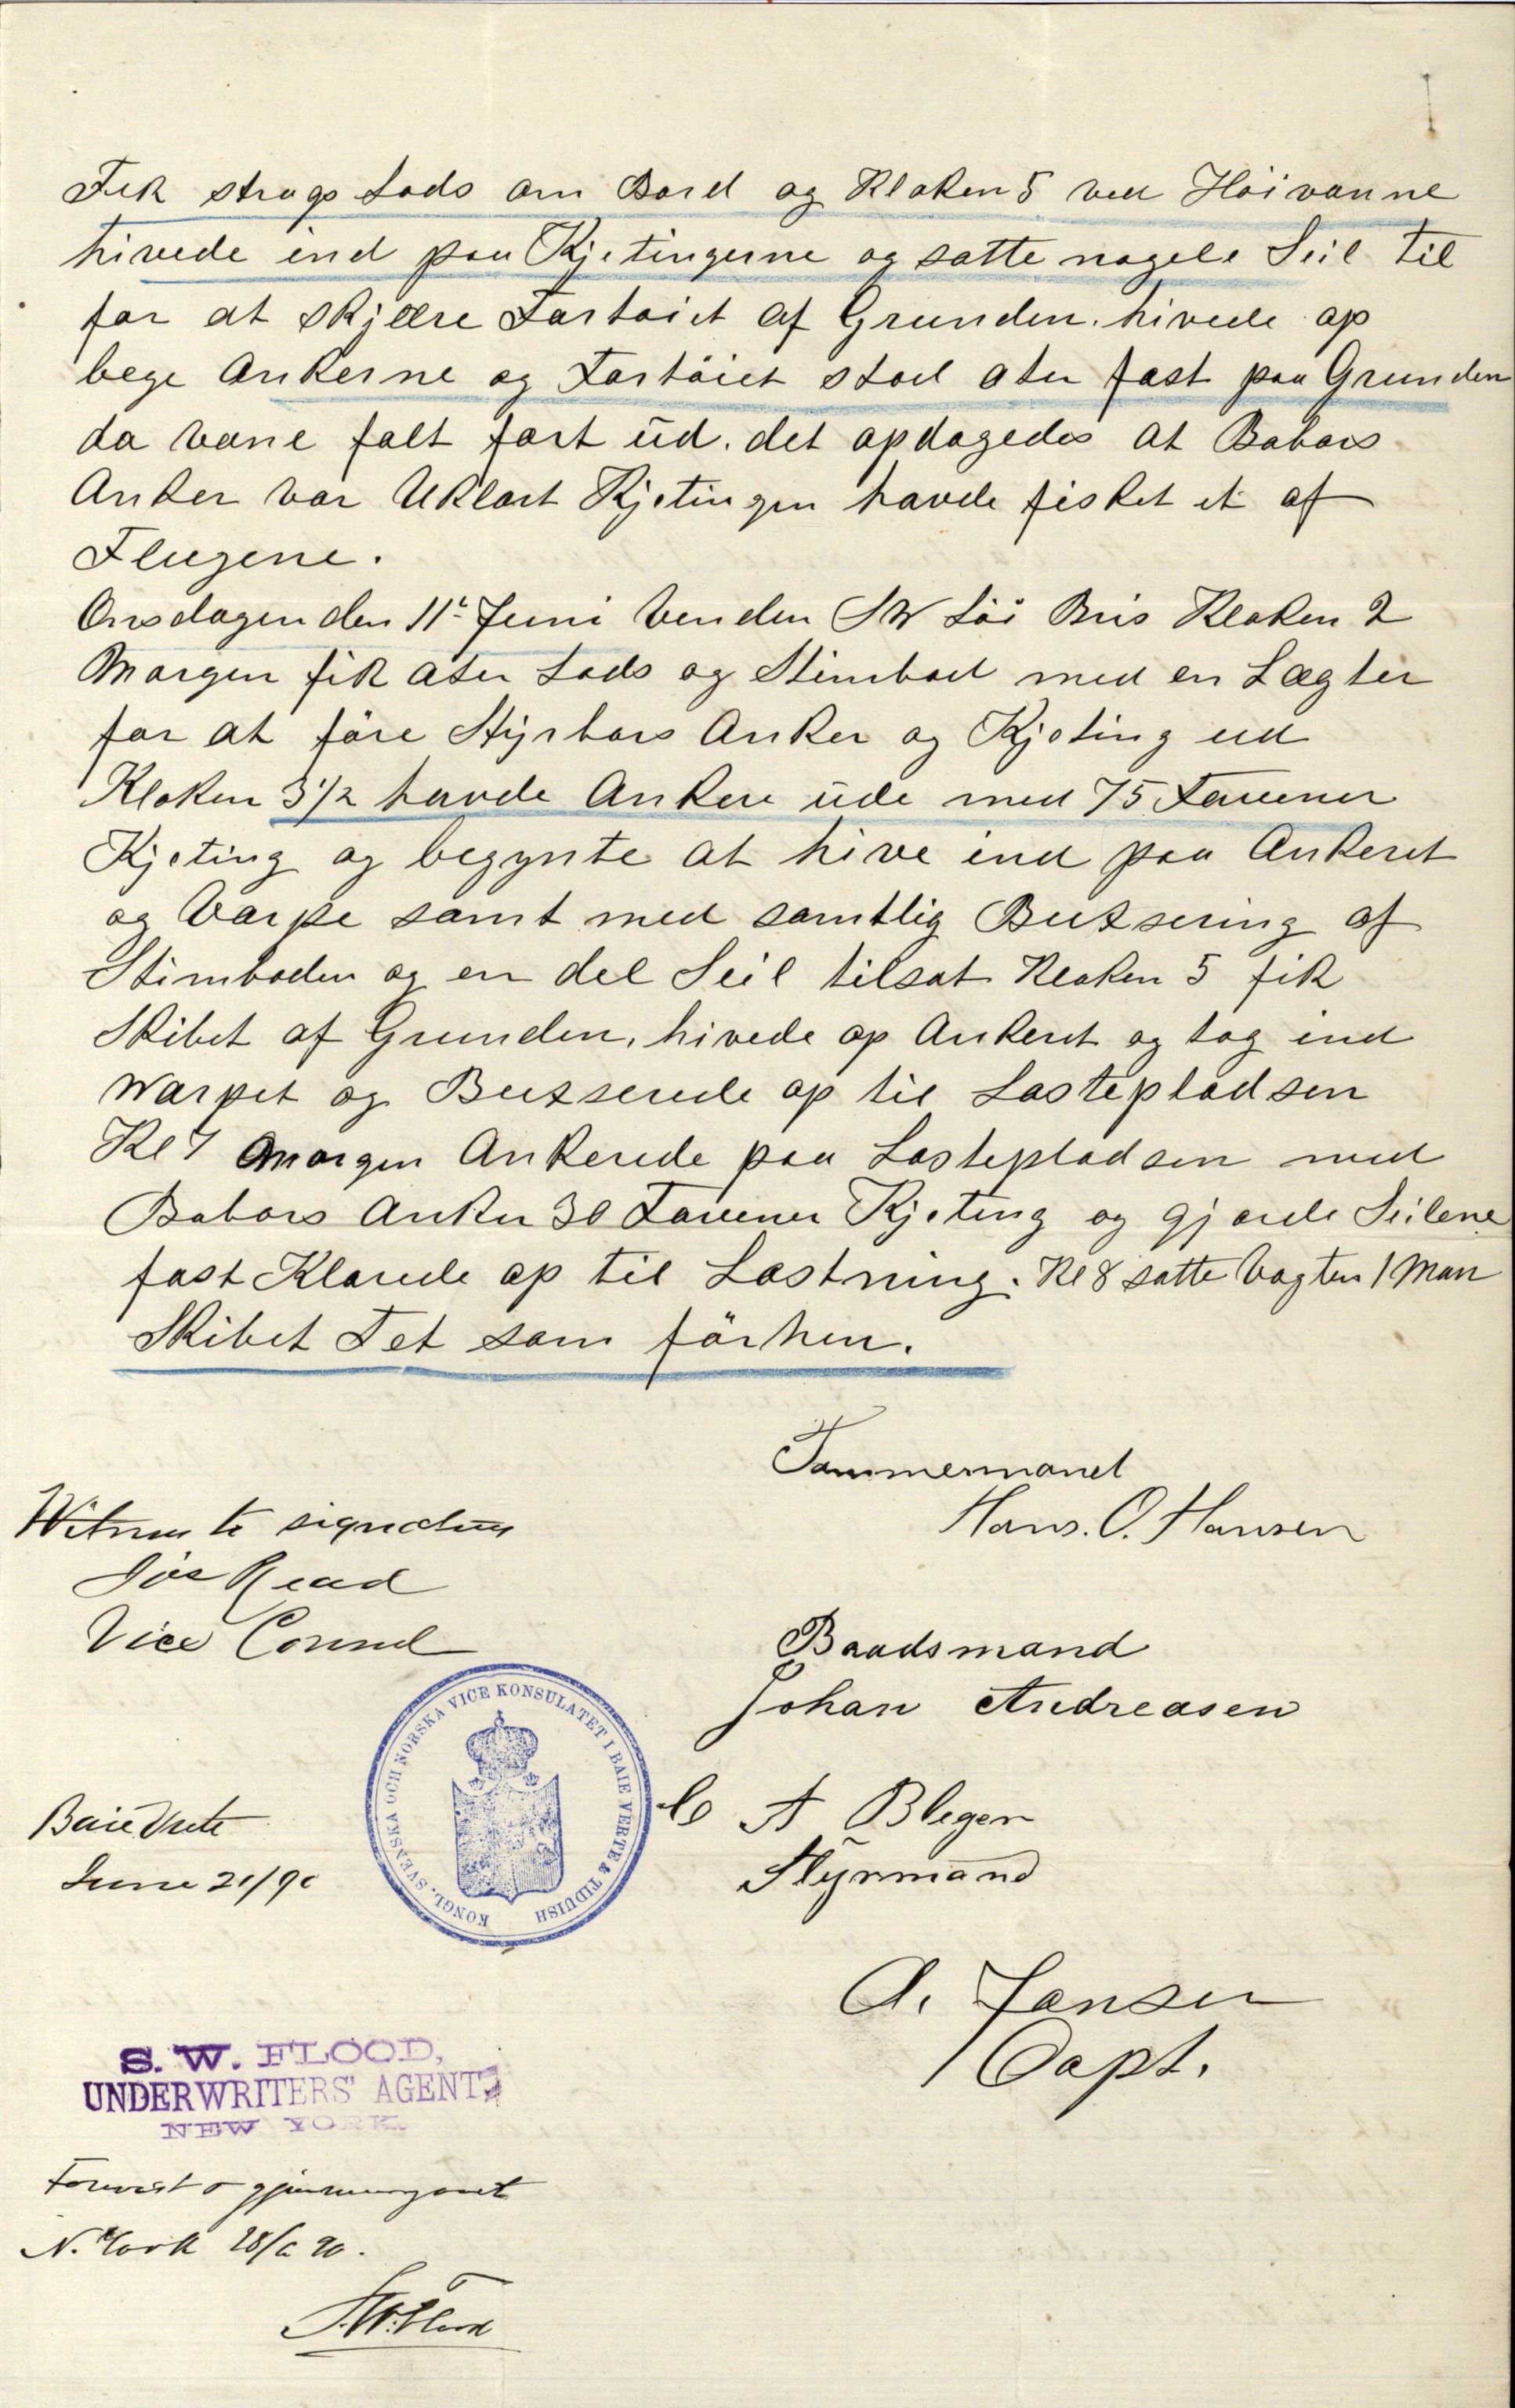 Fik strags Lods om Bord og Kloken 5 ved Höivanne
hivede ind paa Kjetingerne og satte nogele Seil til
for at skjære Fartöiet af Grunden. hivede op
bege Ankerne og Fartöiet stod ater fast paa Grunden
da vane falt fort ud. det opdagedes at Babors
Anker var Uklart Kjetingen havde fisket et af
Flugene.
Onsdagen den 11te Juni Venden SW Löi Bris Kloken 2
Morgen fik ater Lods og Stimbod med en Lægter
for at före Styrbors Anker og Kjeting ud
Kloken 3 1/2 havde Ankere ude med 75 Favener
Kjeting og begynte at hive ind paa Ankeret
og Varpe samt med samtlig Buxsering af
Stimboden og en del Seil tilsat Kloken 5 fik
Skibet af Grunden, hivede op Ankeret og tog ind
Warpet og Buxserede op til Lasteplodsen
Kl 7 Morgen Ankerede paa Lasteplodsen med
Babors Anker 30 Favener Kjeting og gjorde Seilene
fast Klarede op til Lastning. Kl 8 satte Vagten 1 Man
Skibet Tet som förhen.
Tømmermand
Hans. O. Hansen
Witness to signatures
Jos Read
Vice Consul
Baadsmand
Johan Andreasen
KONGL. SVENSKA OCH NORSKA VICE KONSULATET I BAIE VERTE & TIDUISH
C A Blegen
Styrmand
Baie Verte
June 21/90
A. Jansen
Capt.
S. W. FLOOD,
UNDERWRITERS' AGENT,
NEW YORK.
Forevist & gjennemgaaet
N. York 28/6 90.
S.W. Flood